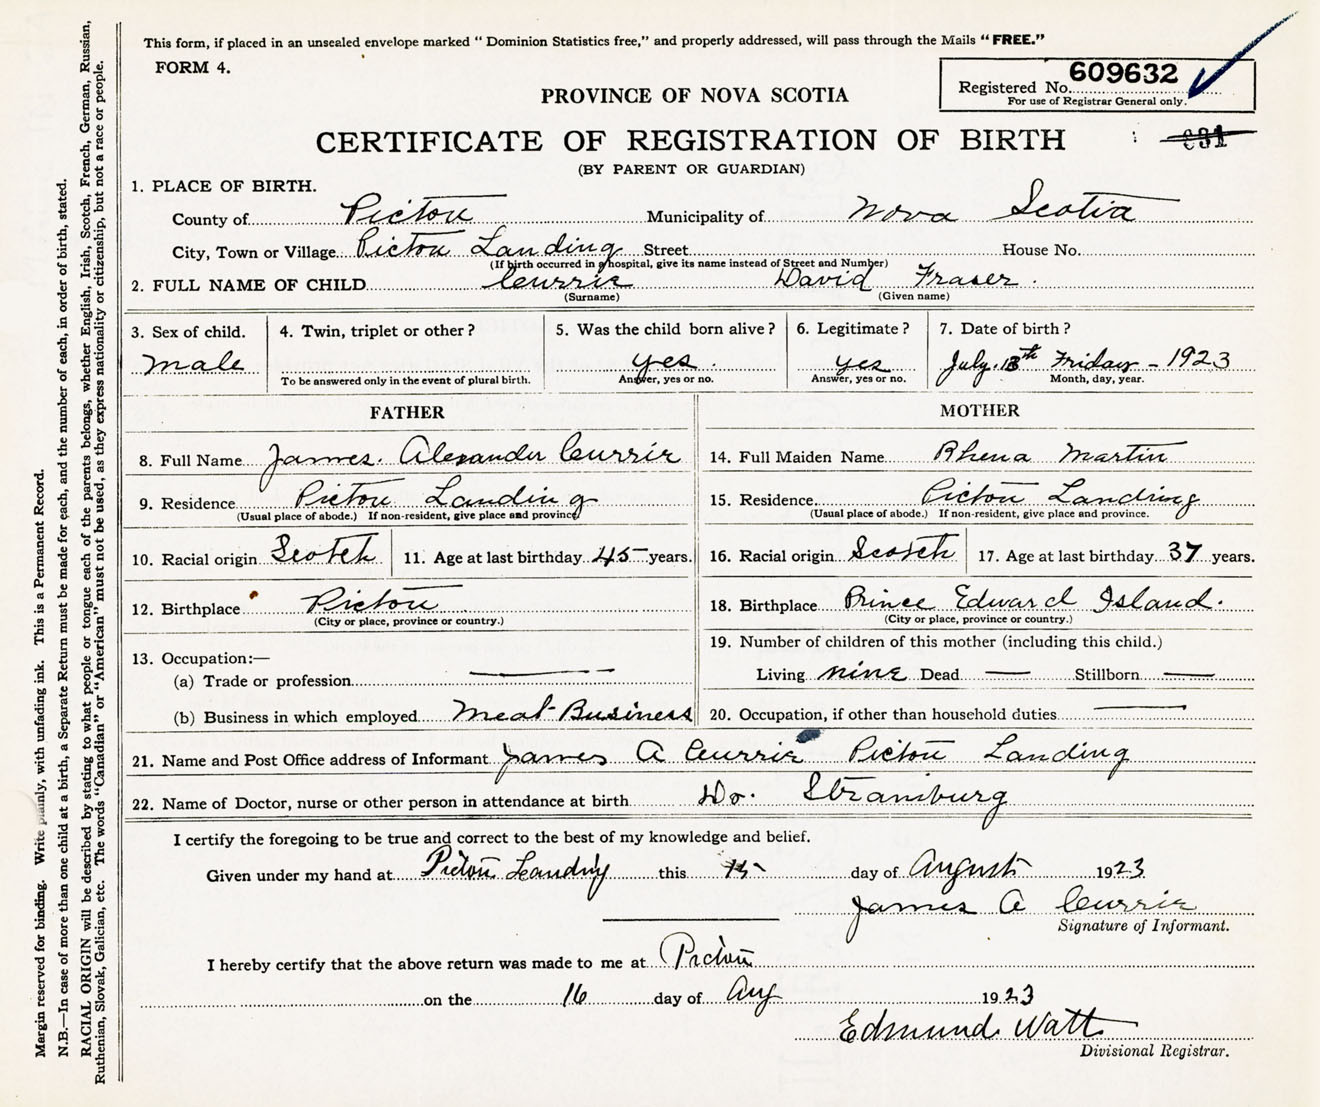 This form, if placed in an unsealed envelope marked “ Dominion Statistics free,” and properly addressed, will pass through the Mails “FREE.”
FORM 4.
Registered No. 609632
For use of Registrar General only.
PROVINCE OF NOVA SCOTIA
CERTIFICATE OF REGISTRATION OF BIRTH
(BY PARENT OR GUARDIAN)
1. PLACE OF BIRTH.
County of Pictou Municipality of Nova Scotia
City, Town or Village Pictou Landing Street House No.
(If birth occurred in a hospital, give its name instead of Street and Number)
2. FULL NAME OF CHILD Currie David Fraser.
(Surname) (Given name)
3. Sex of child. 4. Twin, triplet or other? 5. Was the child born alive? 6. Legitimate? 7. Date of birth?
male yes. yes July. 13th Friday - 1923
To be answered only in the event of plural birth. Answer, yes or no. Answer, yes or no. Month, day, year.
FATHER
8. Full Name James. Alexander Currie
9. Residence Pictou Landing
(Usual place of abode.) If non-resident, give place and province.
10. Racial origin Scotch 11. Age at last birthday 45 years.
12. Birthplace Pictou
(City or place, province or country.)
13. Occupation:—
(a) Trade or profession —
(b) Business in which employed Meat-Business
MOTHER
14. Full Maiden Name Rhena Martin
15. Residence Pictou Landing
(Usual place of abode.) If non-resident, give place and province.
16. Racial origin Scotch 17. Age at last birthday 37 years.
18. Birthplace Prince Edward Island.
(City or place, province or country.)
19. Number of children of this mother (including this child.)
Living nine Dead — Stillborn —
20. Occupation, if other than household duties —
21. Name and Post Office address of Informant James A Currie Pictou Landing
22. Name of Doctor, nurse or other person in attendance at birth Dr.
I certify the foregoing to be true and correct to the best of my knowledge and belief.
Given under my hand at Pictou Landing this 15 day of August 1923
James A Currie
Signature of Informant.
I hereby certify that the above return was made to me at Pictou
on the 16 day of Aug 1923
Edmund Watt
Divisional Registrar.
Margin reserved for binding. Write plainly, with unfading ink. This is a Permanent Record.
N.B.—In case of more than one child at a birth, a Separate Return must be made for each, and the number of each, in order of birth, stated.
RACIAL ORIGIN will be described by stating to what people or tongue each of the parents belongs, whether English, Irish, Scotch, French, German, Russian,
Ruthenian, Slovak, Galician, etc. The words “Canadian” or “American” must not be used, as they express nationality or citizenship, but not a race or people.